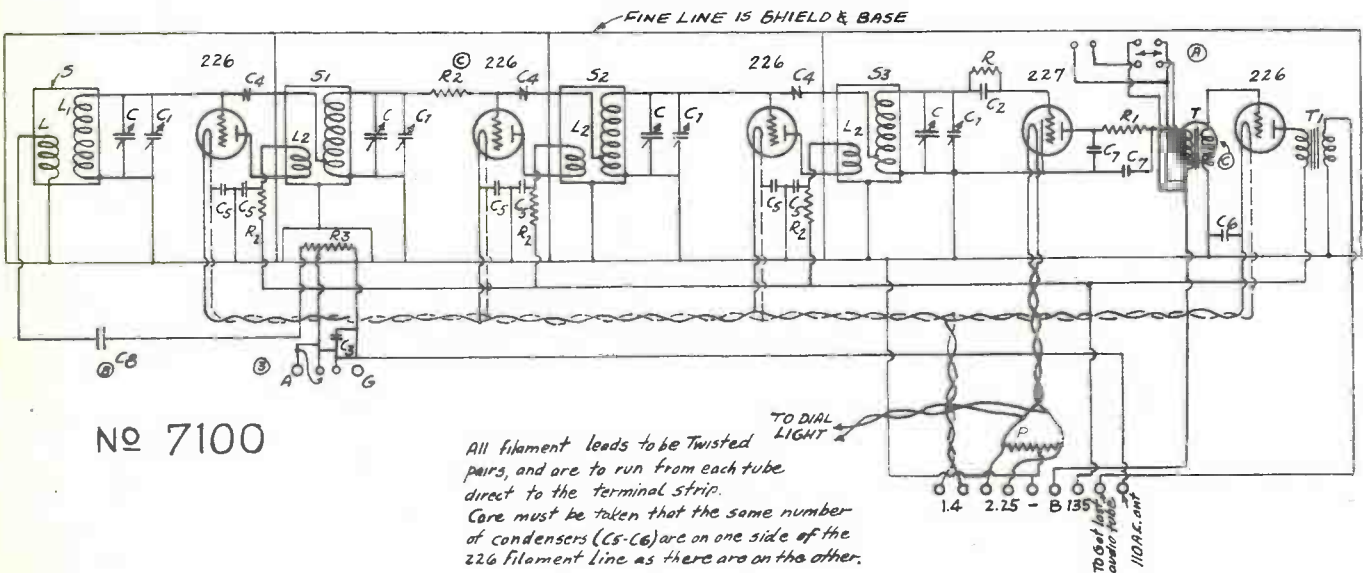 FINE LINE IS SHIELD & BASE
S
226
C4
S1
© 226
R2
C4
S2
226
C4
S3
R
C2
227
A
226
L1
L
C
C1
L2
C
C1
L2
C
C1
L2
C
C1
R1
C7
C7
T
PRI
©
T1
C5
C5
R2
R3
C5
C5
R2
C5
C5
R2
C6
C8
3
A
C3
G
No 7100
TO DIAL
LIGHT
P
All filament leads to be Twisted
pairs, and are to run from each tube
direct to the terminal strip.
Care must be taken that the same number
of condensers (C5-C6) are on one side of the
226 Filament Line as there are on the other.
1.4 2.25 - B 135
audio tube
110 A.C. ant